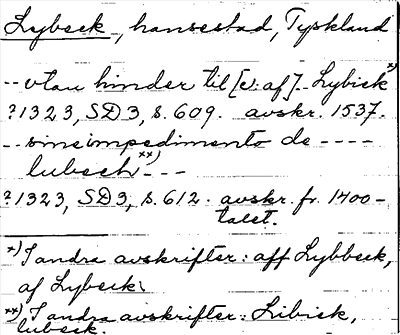 Lybeck, hansestad, Tyskland
-- utan hinder til [el. af] -- Lybick x)
?1323, SD3, s. 609. avskr. 1537.
-- sine impedimento de ----
lubech xx) ---
?1323, SD3, s. 612. avskr. fr. 1400-
talet.
x) I andra avskrifter: aff Lybbeck,
af Lybeck.
xx) I andra avskrifter: Libick,
lubeck.